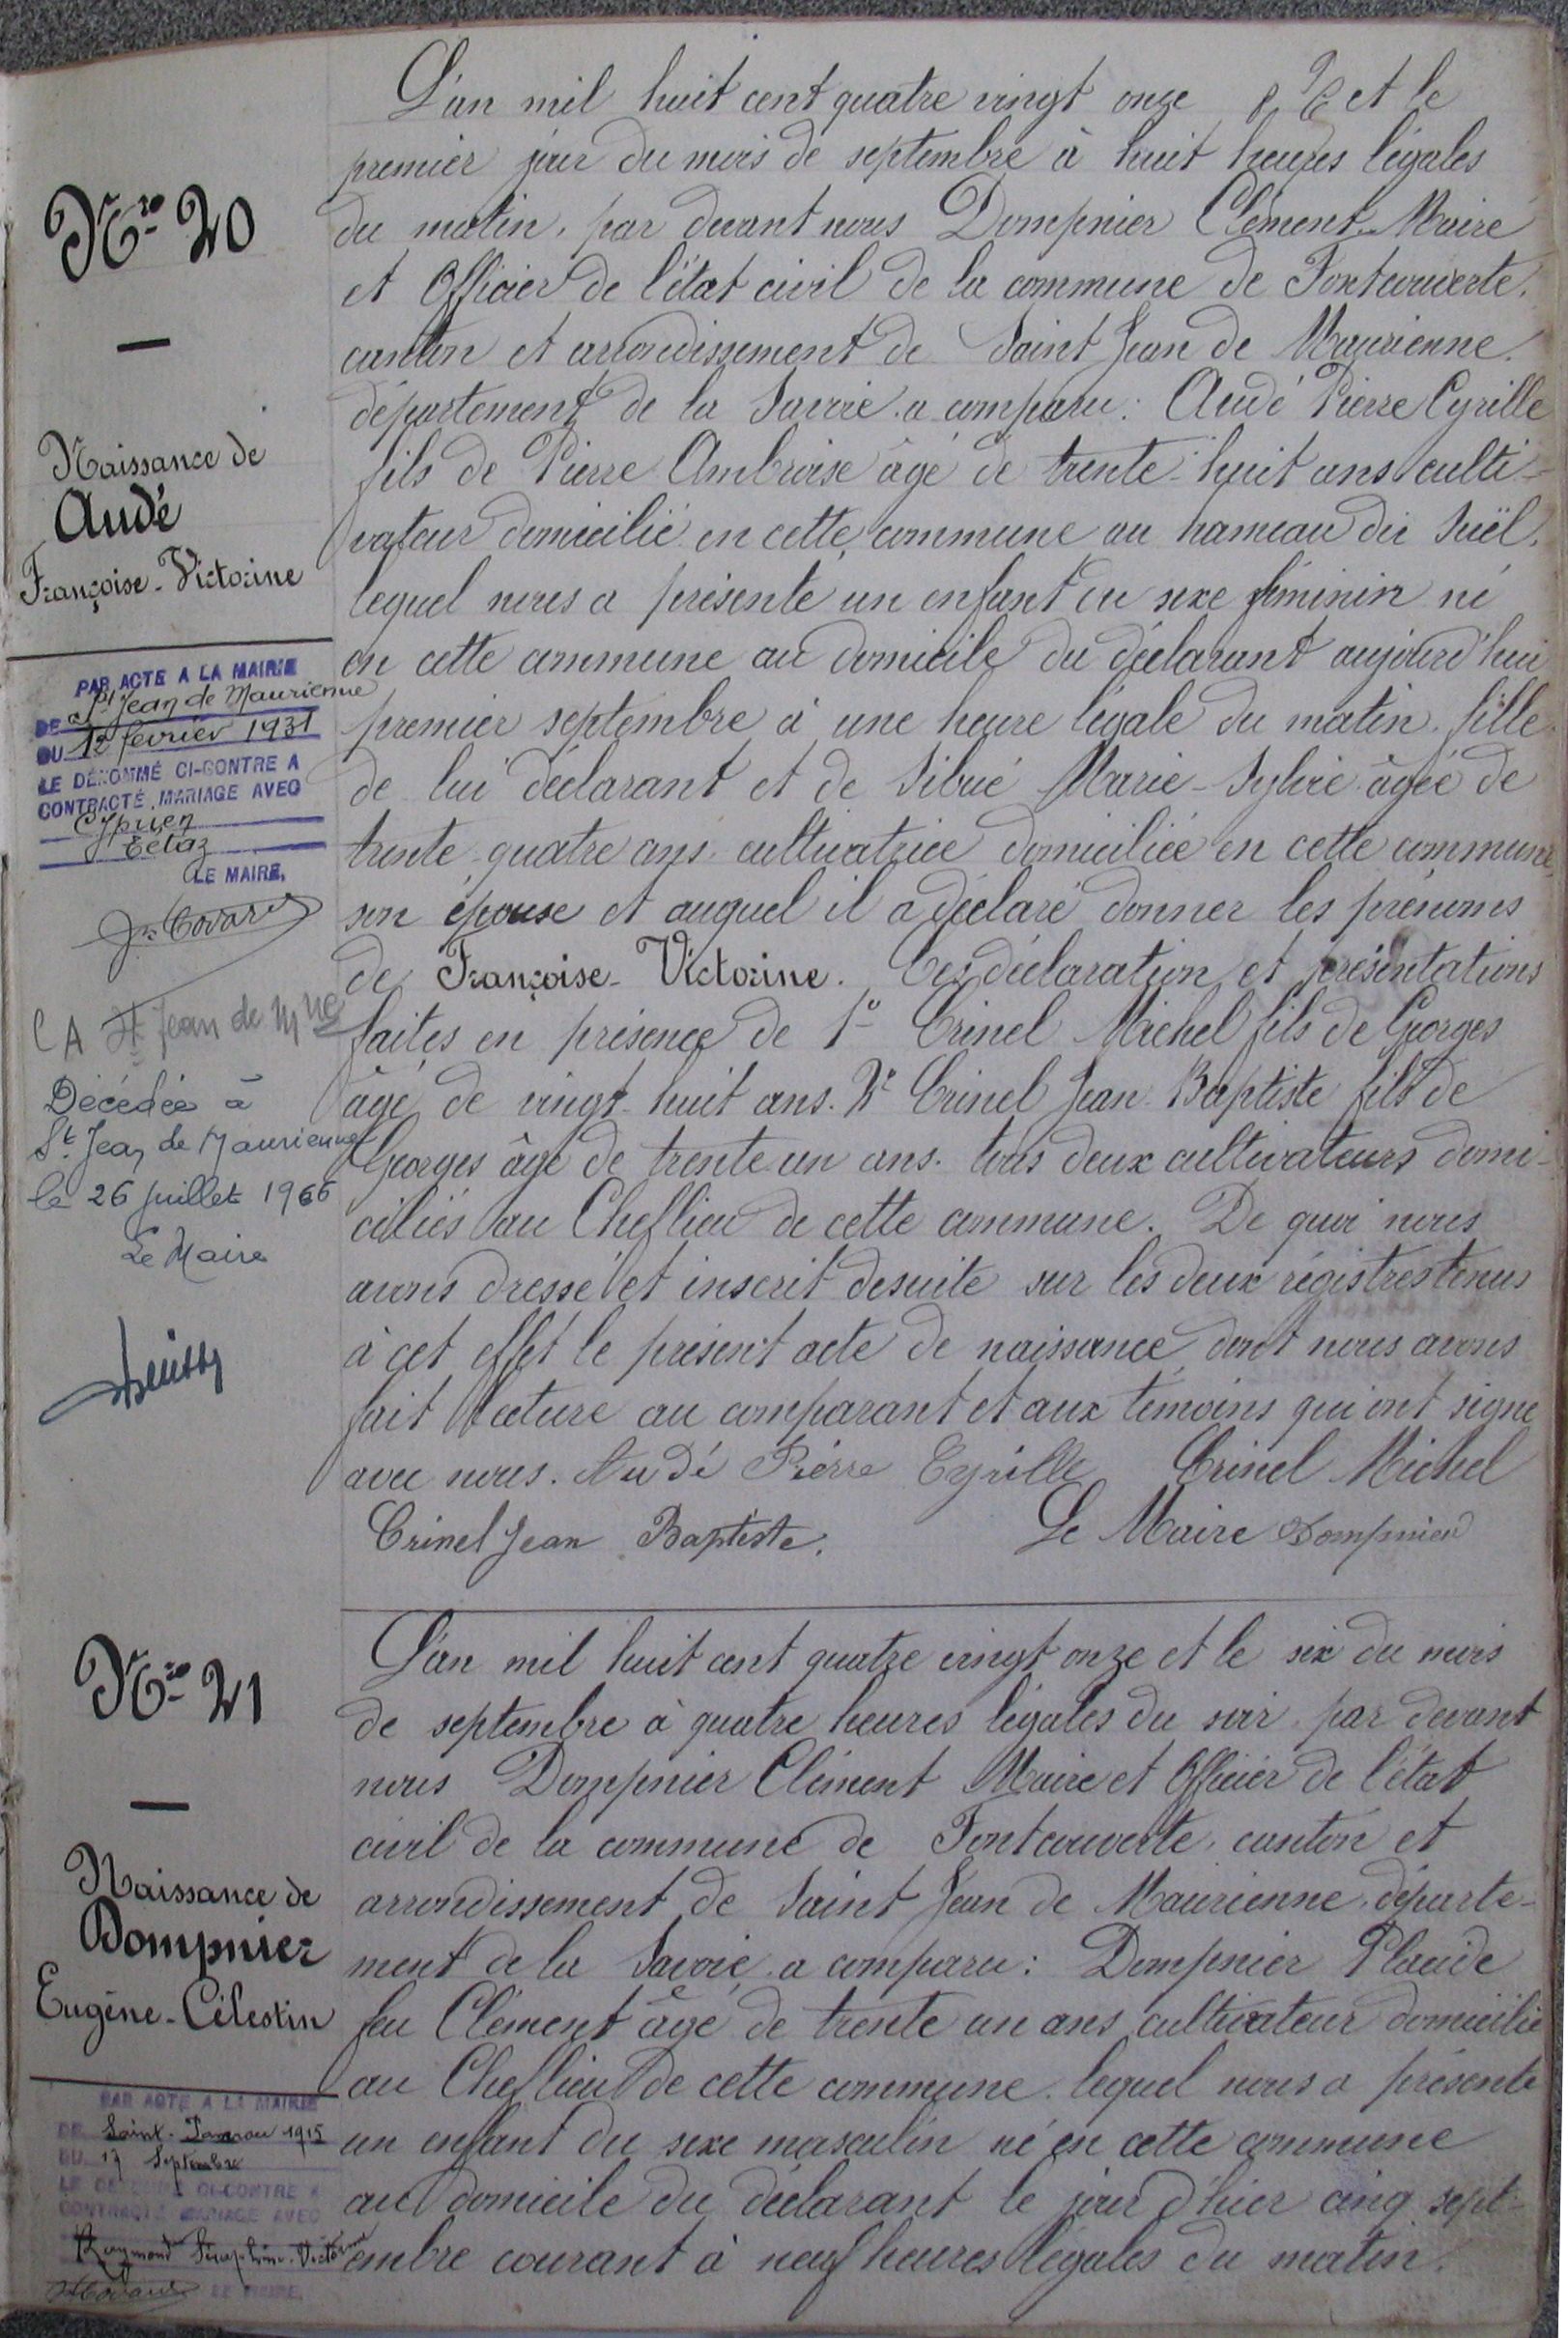 L'an mil huit cent quatre vingt onze et le
premier jour du mois de septembre à huit heures légales
du matin, par devant nous Dompnier Clément Maire
et Officier de l'état civil de la commune de Fontcouverte,
canton et arrondissement de Saint Jean de Maurienne,
département de la Savoie a comparu : Audé Pierre Cyrille
fils de Pierre Ambroise âgé de trente-huit ans culti-
vateur domicilié en cette commune au hameau du Suël,
lequel nous a présenté un enfant du sexe féminin né
en cette commune au domicile du déclarant aujourd'hui
premier septembre à une heure légale du matin, fille
de lui déclarant et de Sibué Marie-Sylvie âgée de
trente-quatre ans cultivatrice domiciliée en cette commune
son épouse et auquel il a déclaré donner les prénoms
de Françoise-Victorine. Ces déclaration et présentations
faites en présence de 1° Crinel Michel fils de Georges
âgé de vingt-huit ans. 2° Crinel Jean-Baptiste fils de
Georges âgé de trente un ans. tous deux cultivateurs domi-
ciliés au Cheflieu de cette commune. De quoi nous
avons dressé et inscrit desuite sur les deux régistres tenus
à cet effet le présent acte de naissance dont nous avons
fait lecture au comparant et aux témoins qui ont signé
avec nous. Audé Pierre Cyrille Crinel Michel
Crinel Jean Baptiste. Le Maire Dompnier
Nro 20
Naissance de
Audé
Françoise-Victorine
PAR ACTE A LA MAIRIE
DE St Jean de Maurienne
DU 12 février 1931
LE DÉNOMMÉ CI-CONTRE A
CONTRACTÉ MARIAGE AVEC
Cyprien
Tétaz
LE MAIRE,
CA St Jean de Mne
Décédée à
St Jean de Maurienne
le 26 juillet 1966
Le Maire
L'an mil huit cent quatre vingt onze et le six du mois
de septembre à quatre heures légales du soir, par devant
nous Dompnier Clément Maire et Officier de l'état
civil de la commune de Fontcouverte, canton et
arrondissement de Saint Jean de Maurienne, départe-
ment de la Savoie, a comparu : Dompnier Placide
feu Clément âgé de trente un ans cultivateur domicilié
au Cheflieu de cette commune. lequel nous a présenté
un enfant du sexe masculin né en cette commune
au domicile du déclarant le jour d'hier cinq sept-
embre courant à neuf heures légales du matin.
Nro 21
Naissance de
Dompnier
Eugène-Célestin
PAR ACTE A LA MAIRIE
DE Saint-Pancrace 1915
DU 17 Septembre
LE DÉNOMMÉ CI-CONTRE A
CONTRACTÉ MARIAGE AVEC
Raymond Séraphine-Victorine
LE MAIRE,